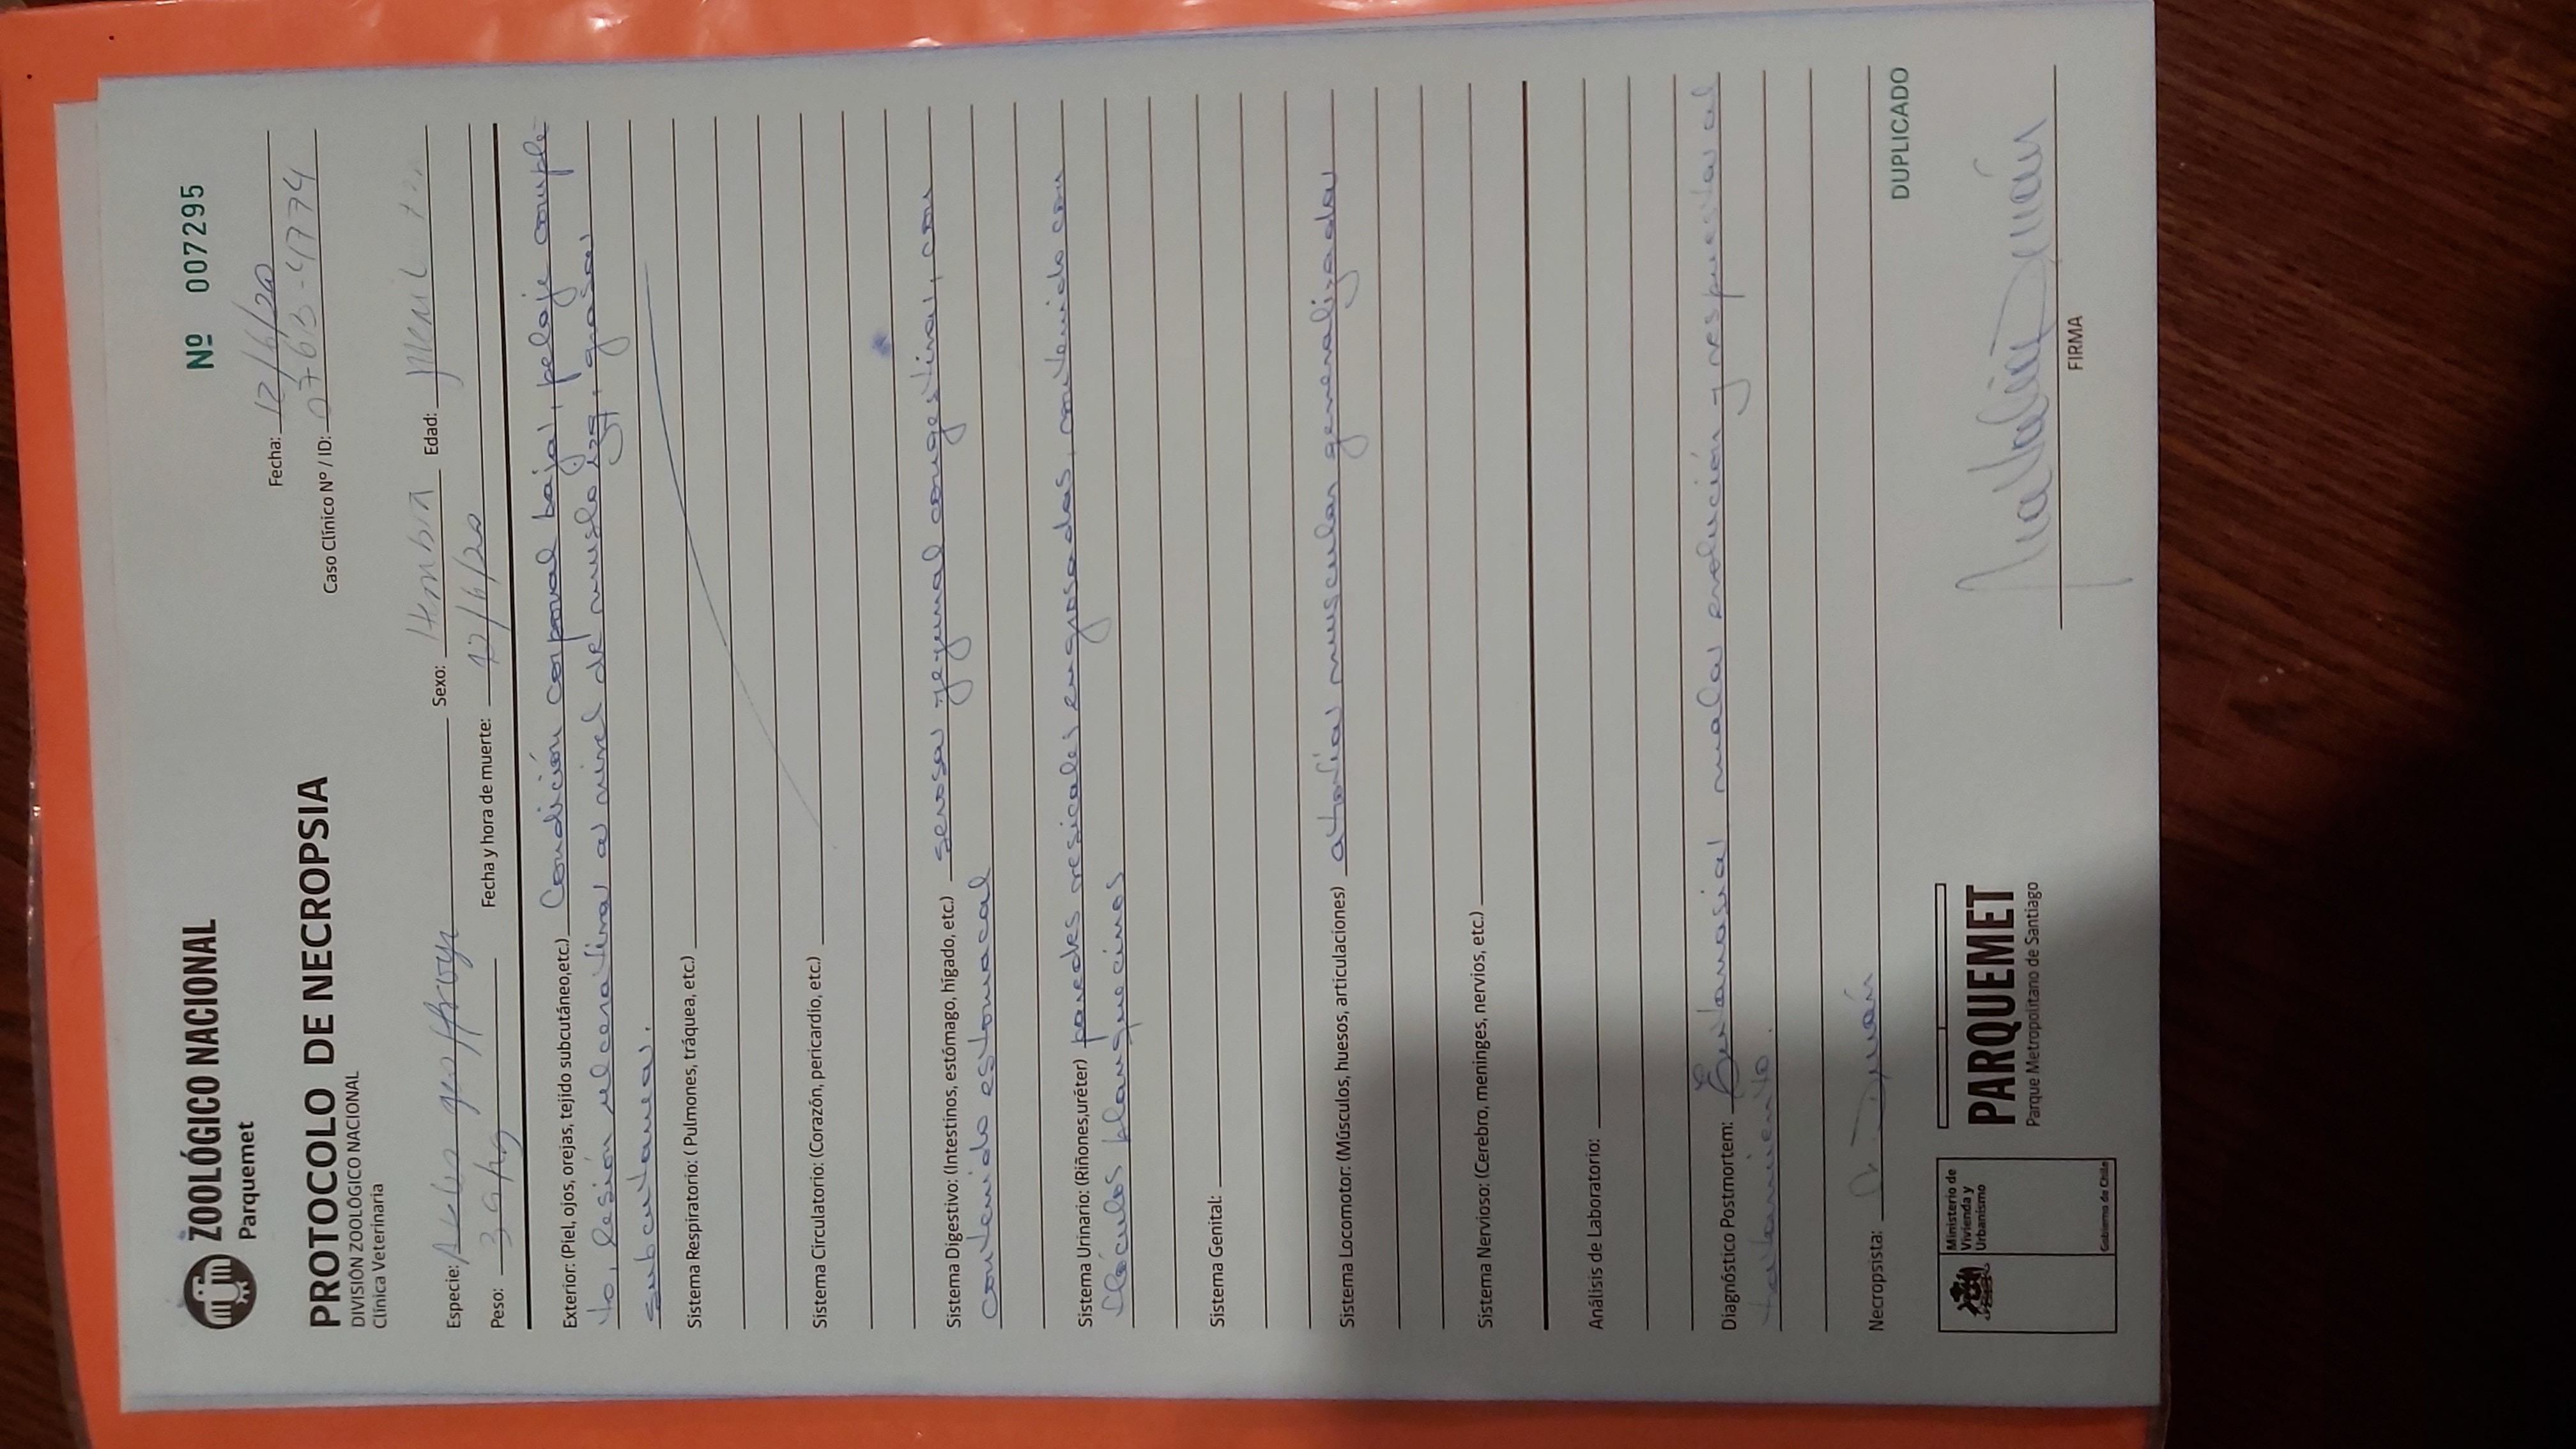 ZOOLÓGICO NACIONAL
Parquemet
Nº 007295
Fecha: 12/6/20
PROTOCOLO DE NECROPSIA
Caso Clínico Nº / ID: 0763-4774
DIVISIÓN ZOOLÓGICO NACIONAL
Clínica Veterinaria
Especie: geoffroyi Sexo: Hembra Edad:
Peso: Fecha y hora de muerte: 12/6/20
Exterior: (Piel, ojos, orejas, tejido subcutáneo,etc.) Condición corporal baja, pelaje comple-
to, lesión ulcerativa a nivel de muslo izq, grasa
subcutanea.
Sistema Respiratorio: ( Pulmones, tráquea, etc.)
Sistema Circulatorio: (Corazón, pericardio, etc.)
Sistema Digestivo: (Intestinos, estómago, hígado, etc.) serosa yeyunal congestiva, con
contenido estomacal
Sistema Urinario: (Riñones,uréter) paredes vesicales engrosadas, contenido con
flóculos blanquecinos
Sistema Genital:
Sistema Locomotor: (Músculos, huesos, articulaciones) atrofia muscular generalizada
Sistema Nervioso: (Cerebro, meninges, nervios, etc.)
Análisis de Laboratorio:
Diagnóstico Postmortem: Eutanasia mala evolución y respuesta al
tratamiento.
Necropsista:
DUPLICADO
Ministerio de
Vivienda y
Urbanismo
Gobierno de Chile
PARQUEMET
Parque Metropolitano de Santiago
Natalia
FIRMA